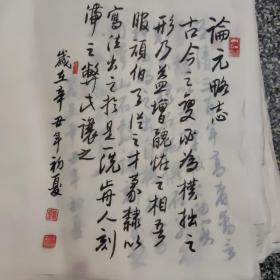 論元略志
古今之變必為樸拙之
形乃益增醜怪之相吾
服頑伯了從之才篆隸以
寫法出之於是一洗前人刻
滯之弊氏讓之
歲在辛丑年初夏